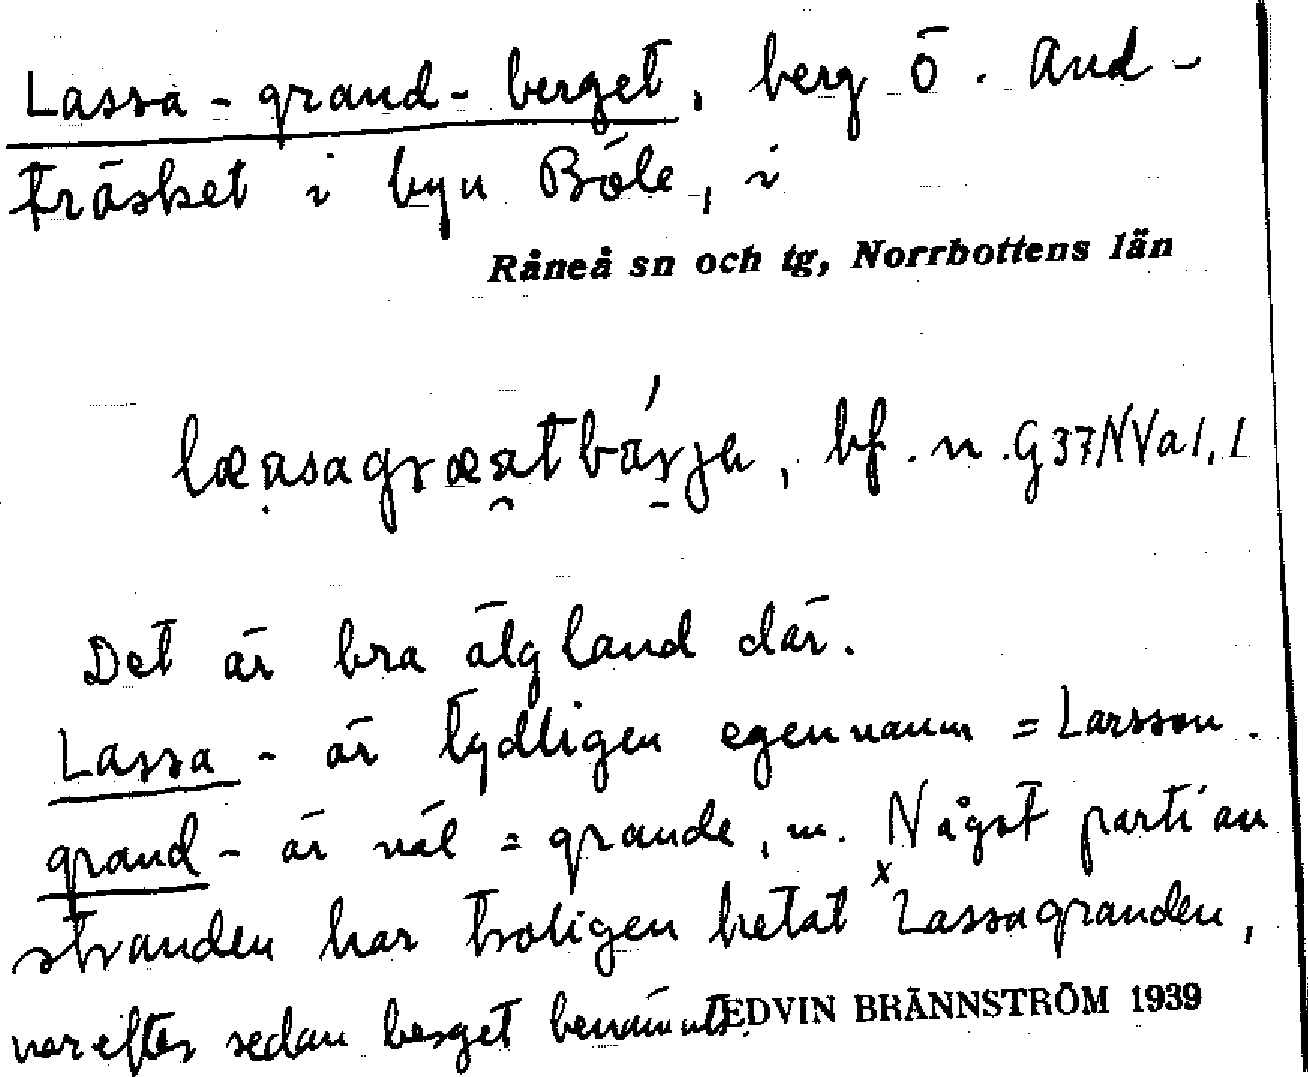 Lassa-grand-berget, berg Ö. And-
träsket i byn Böle, i
Råneå sn och tg, Norrbottens län
bf. n. G37NVa1,1
Det är bra älgland där.
Lassa- är tydligen egennamn = Larsson.
grand- är väl = grande, m. Något parti av
stranden har troligen hetat ˣLassagranden,
varefter sedan berget benämnts.
EDVIN BRÄNNSTRÖM 1939